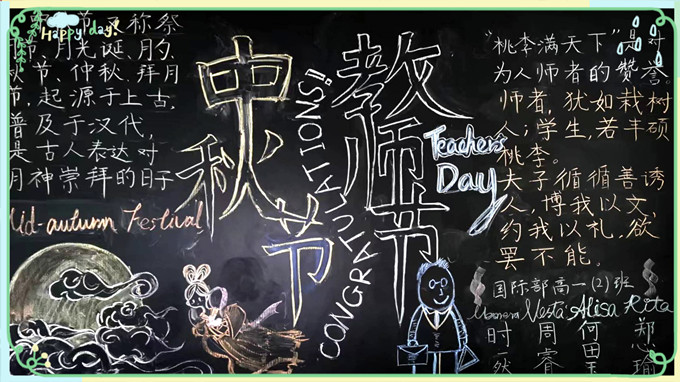 Happy day!
节又称祭
节、月光诞、月
秋节、仲秋、拜月
节,起源于上古,
普及于汉代,
是古人表达对
月神崇拜的日子
Mid-autumn Festival
中秋节
CONGRATULATIONS!
教师节
Teacher's
Day
“桃李满天下”是对
为人师者的赞誉。
师者,犹如栽树
人;学生,若丰硕
桃李。
夫子循循善诱
人,博我以文,
约我以礼,欲
罢不能。
国际部高一(2)班
Vesta Alisa Rita
时 周 何 郑
睿 心瑜